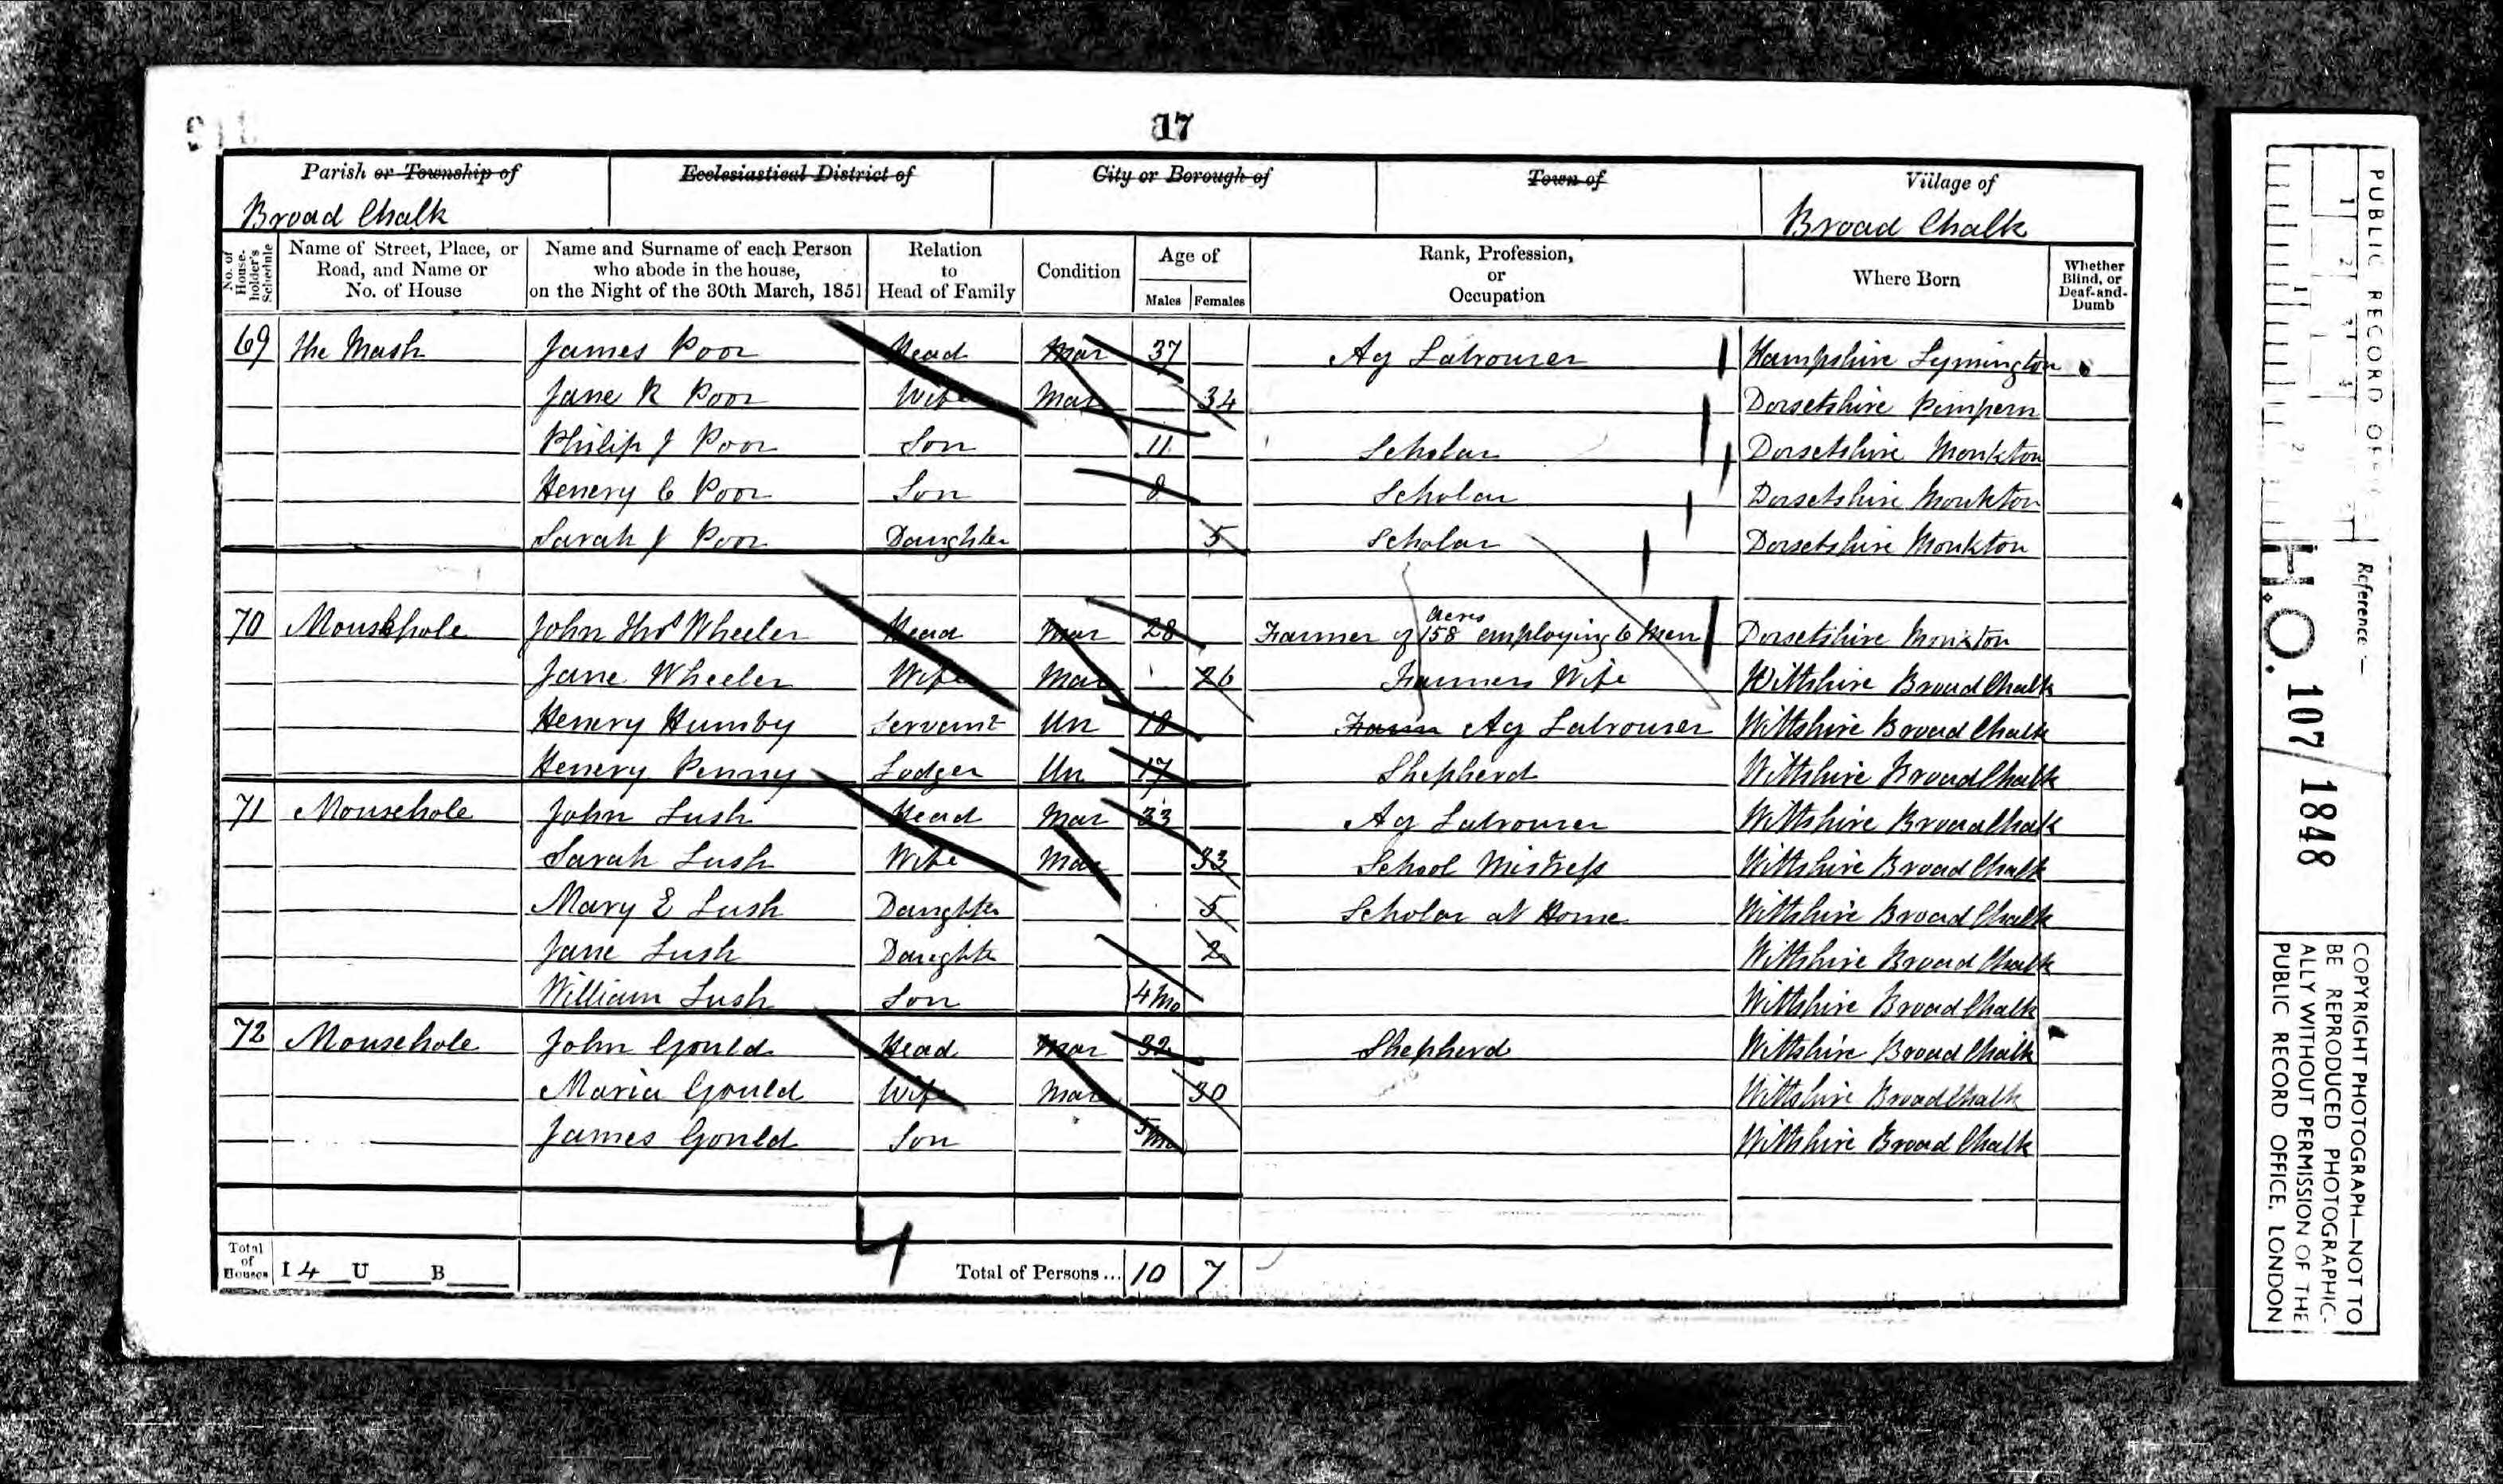 17
Parish or Township of
Ecclesiastical District of
City or Borough of
Town of
Village of
Broad Chalk
Broad Chalk
No. of House-holder's Schedule
Name of Street, Place, or Road, and Name or No. of House
Name and Surname of each Person who abode in the house, on the Night of the 30th March, 1851
Relation to Head of Family
Condition
Age of
Males Females
Rank, Profession, or Occupation
Where Born
Whether Blind, or Deaf-and-Dumb
69 the Mash James Poor Head Mar 37 Ag Labourer Hampshire Lymington
Jane R Poor Wife Mar 34 Dorsetshire Pimpern
Philip J Poor Son 11 Scholar Dorsetshire Monkton
Henery C Poor Son Scholar Dorsetshire Monkton
Sarah J Poor Daughter 5 Scholar Dorsetshire Monkton
70 Mousehole John Thos Wheeler Head Mar 28 Farmer of 158 Acres employing 6 Men Dorsetshire Monkton
Jane Wheeler Wife Mar 26 Farmers Wife Wiltshire Broad Chalk
Henery Humby Servant Un 18 Farm Ag Labourer Wiltshire Broad Chalk
Henery Penny Lodger Un 17 Shepherd Wiltshire Broad Chalk
71 Mousehole John Lush Head Mar 33 Ag Labourer Wiltshire Broad Chalk
Sarah Lush Wife Mar 33 School Mistress Wiltshire Broad Chalk
Mary E Lush Daughter 5 Scholar at Home Wiltshire Broad Chalk
Jane Lush Daughter 2 Wiltshire Broad Chalk
William Lush Son 4 Mo Wiltshire Broad Chalk
72 Mousehole John Gould Head Mar 32 Shepherd Wiltshire Broad Chalk
Maria Gould Wife Mar 30 Wiltshire Broad Chalk
James Gould Son 5 Mo Wiltshire Broad Chalk
4
Total of Houses I 4 U B Total of Persons... 10 7
PUBLIC RECORD OFFICE
Reference :-
H.O. 107/1848
COPYRIGHT PHOTOGRAPH—NOT TO
BE REPRODUCED PHOTOGRAPHIC-
ALLY WITHOUT PERMISSION OF THE
PUBLIC RECORD OFFICE. LONDON